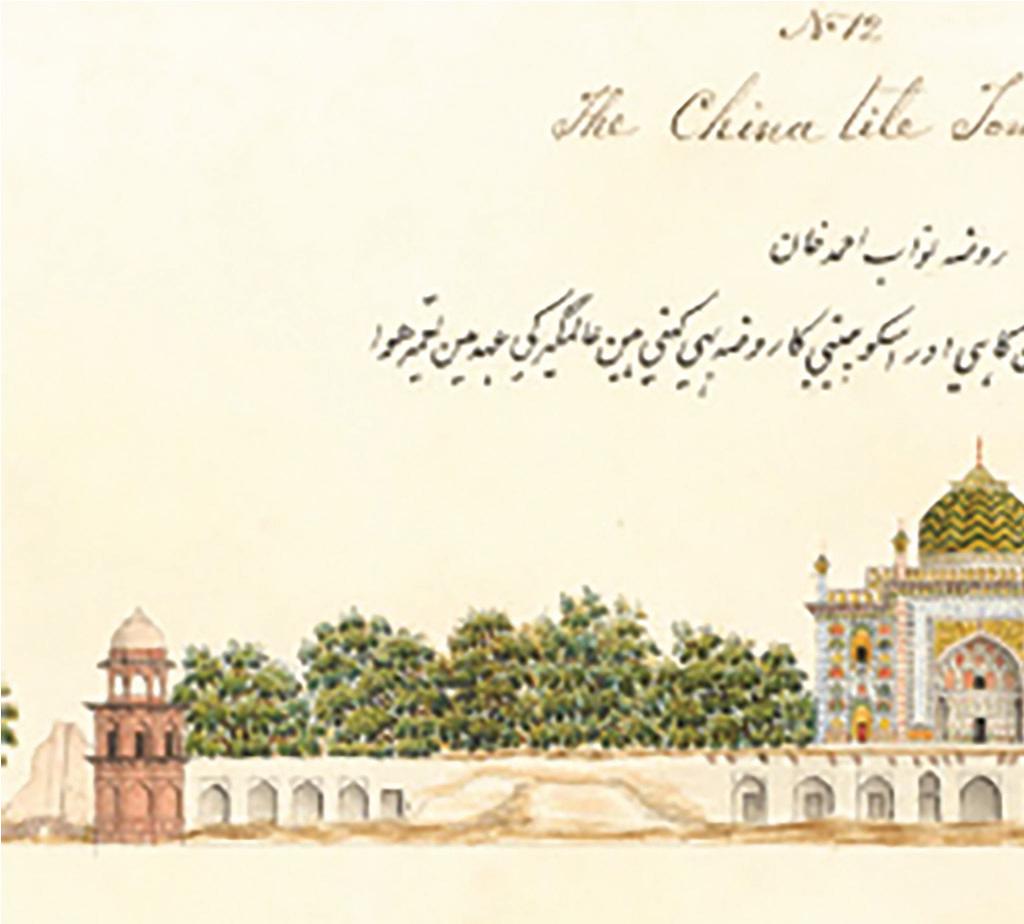 No 12
The China tile
روضہ نواب احمد خان
کا ہی اور اسکو چینی کا روضہ بہی کہتی ہین عالمگیر کی عہد مین تعمیر هوا